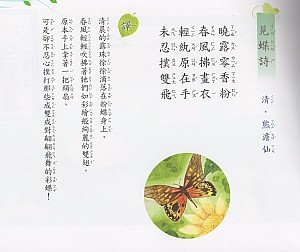 見蝶詩
清．熊澹仙
曉露零香粉
春風拂畫衣
輕紈原在手
未忍撲雙飛
譯
清晨的露珠徐徐滴落在粉蝶身上，
春風輕輕吹拂著牠們如彩繪般絢麗的雙翅。
原本手上拿著一把絹扇，
可是卻不忍心撲打那些成雙成對翩翩飛舞的彩蝶！